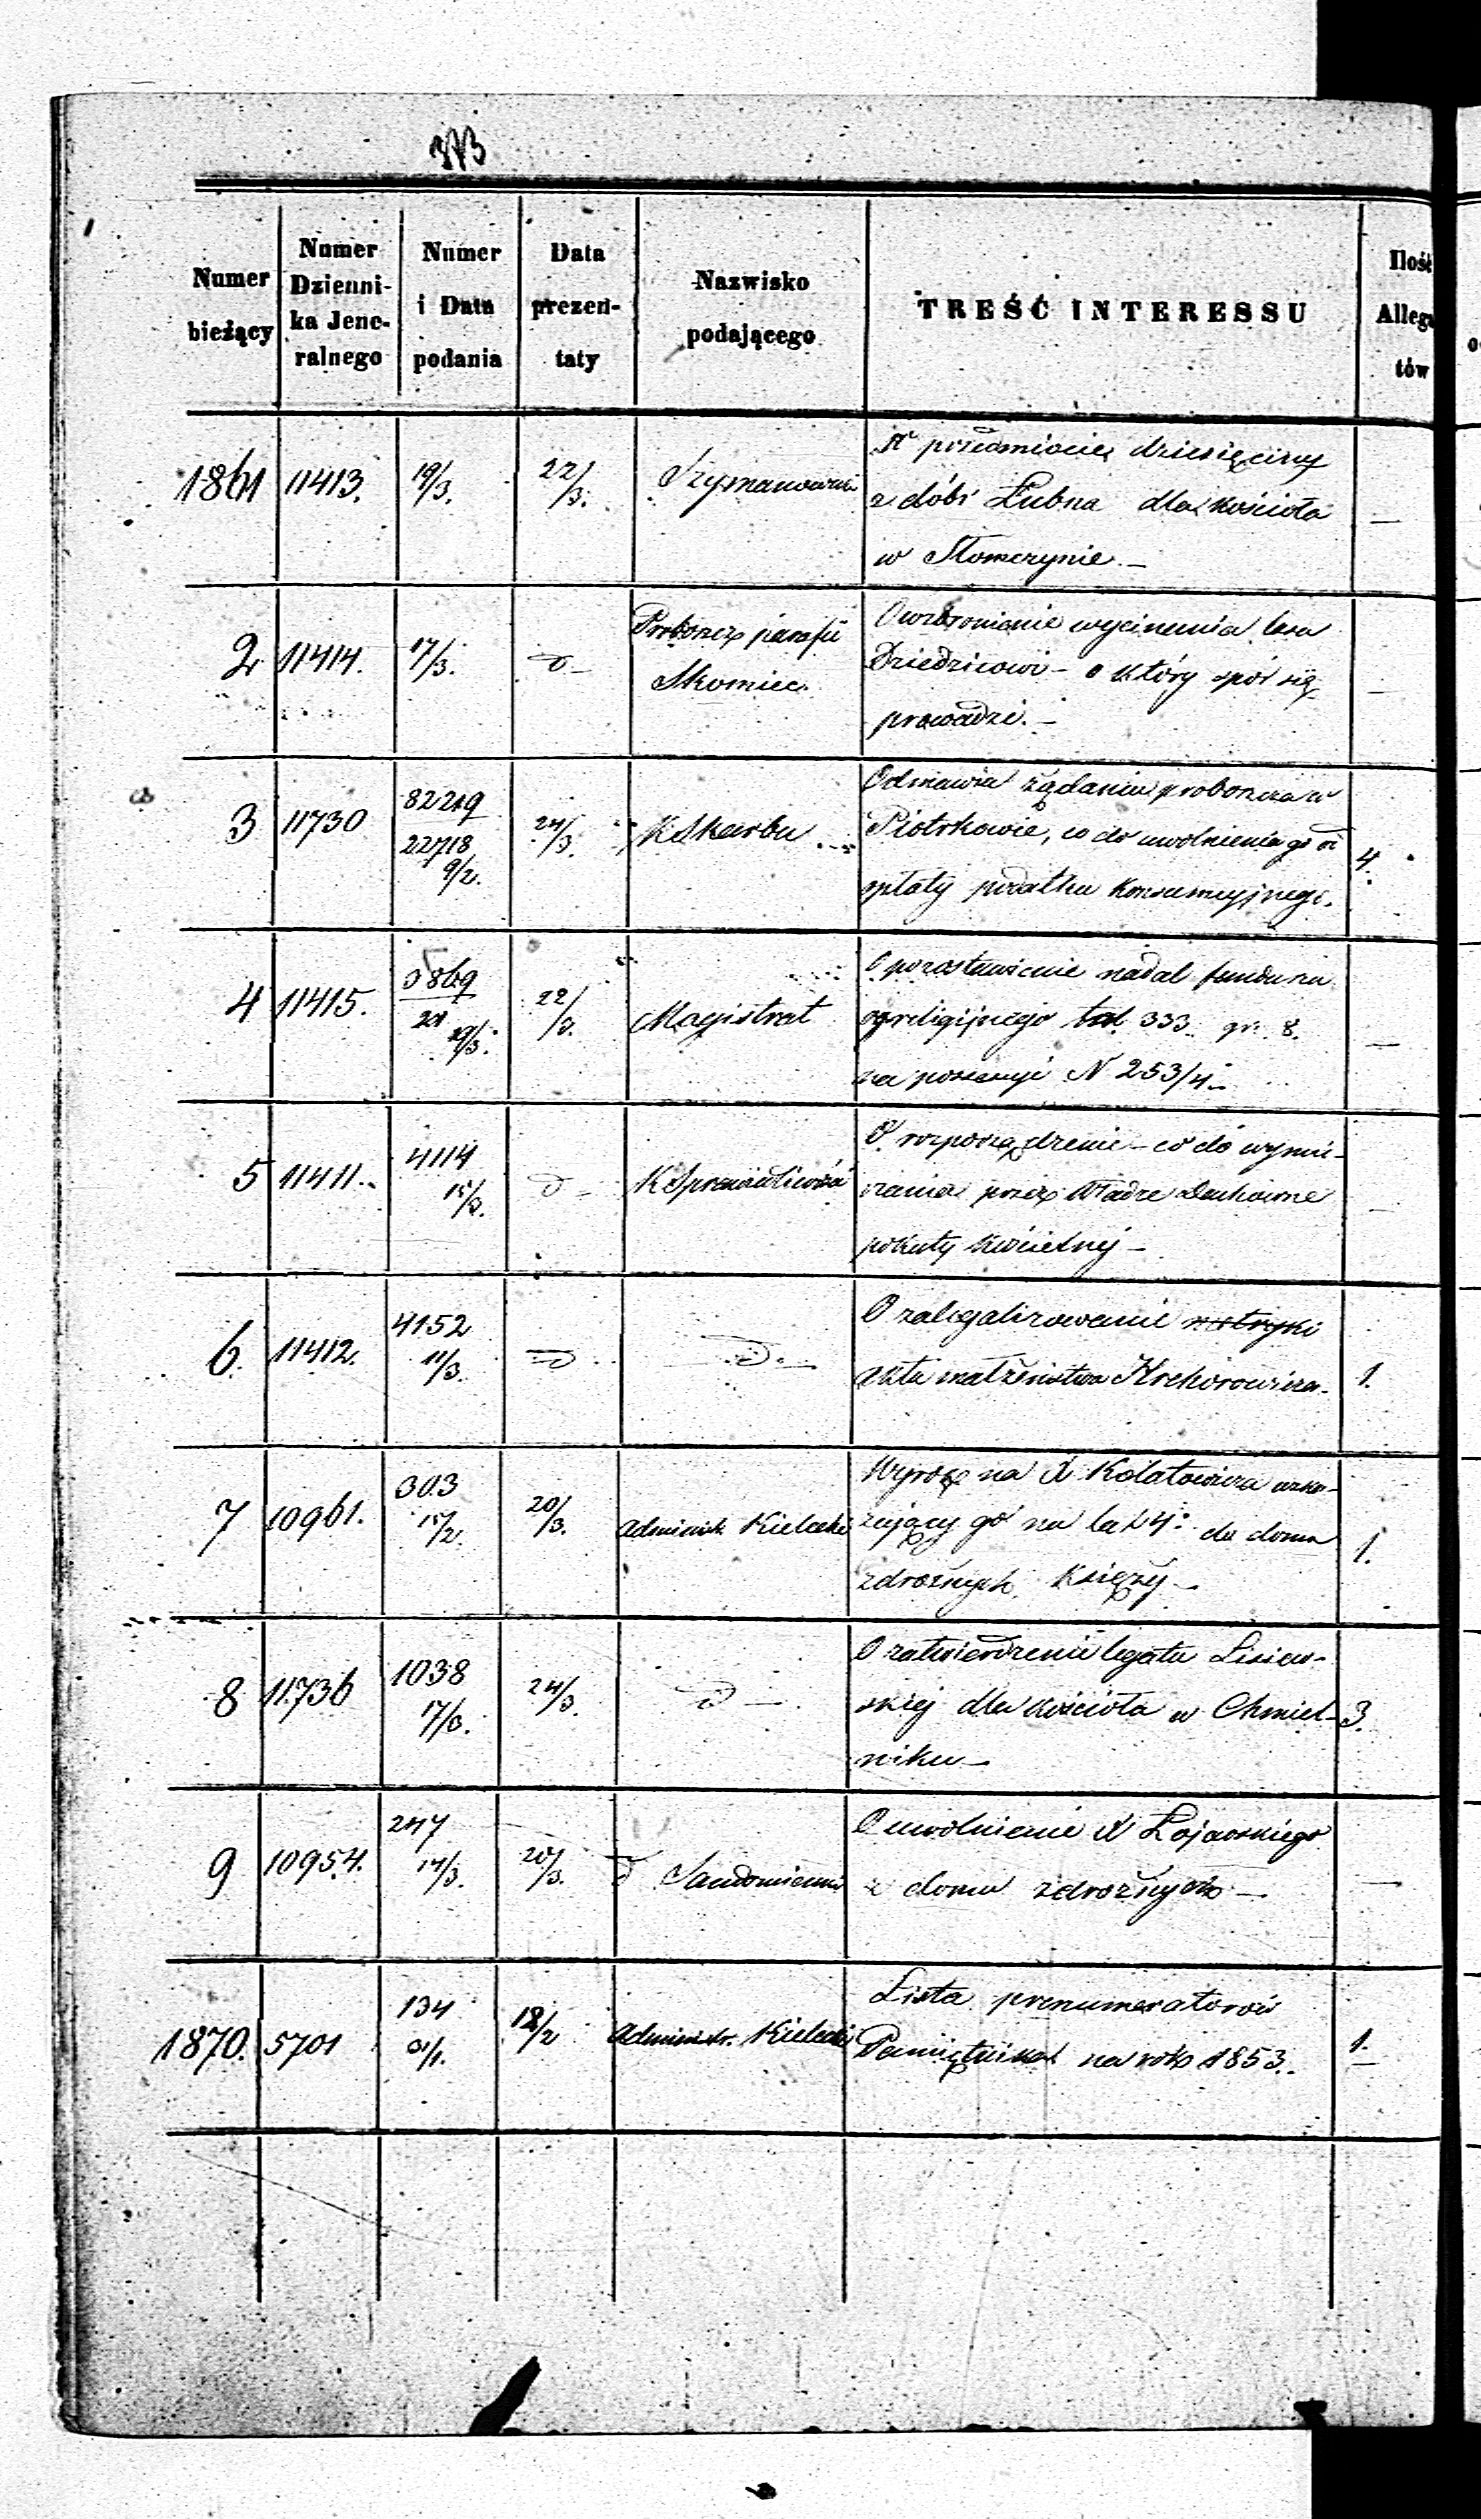 373
Numer bieżący | Numer Dziennika Jeneralnego | Numer i Data podania | Data prezentaty | Nazwisko podającego | TREŚĆ INTERESSU | Ilość Allegatów
1861 | 11413. | 19/3. | 22/3. | Szymanowski | W przedmiocie dziesięciny
z dóbr Łubna dla kościoła | —
w Słomczynie. —
2 | 11414. | 17/3. | d — | Proboszcz parafii | O wzbronienie wycinania lasu
Skomiec. | Dziedzicowi — o który spór się | —
prowadzi. —
3 | 11730 | 82219 / 22718 9/2. | 24/3. | K Skarbu | Odmawia żądaniu proboszcza w
Piotrkowie, co do uwolnienia go od | 4.
opłaty podatku konsumcyjnego.
4 | 11415. | 5869 / 21 19/3. | 22/3. | Magistrat | O pozostawienie nadal funduszu
religijnego 333 gr. 8. | —
na possesyi N 253/4. —
5 | 11411. | 4114 15/3. | d — | K Sprawiedliwości | O rozporządzenie — co do wymie-
rzania przez Władze Duchowne | —
pokuty kościelnej —
6. | 11412. | 4152 11/3. | d | d. — | O zalegalizowanie metryki
Akta małżeństwa Krehorowicza. | 1.
7 | 10961. | 303 15/2. | 20/3. | Administr. Kielecki | Wyrok na X Kołatowicza wska-
zujący go na lat 4. do domu | 1.
zdrożnych Księży —
8 | 11736 | 1038 17/3. | 24/3. | d — | O zatwierdzenie legatu Lisiew-
skiej dla kościoła w Chmiel- | 3.
niku —
9 | 10954. | 247 14/3. | 20/3. | d Sandomierski | O uwolnienie X Łojawskiego
z domu zdrożnych — | —
1870. | 5701 | 134 31/1. | 12/2 | Administr. Kielecki | Lista prenumeratorów
Pamiętnika na rok 1853. | 1.